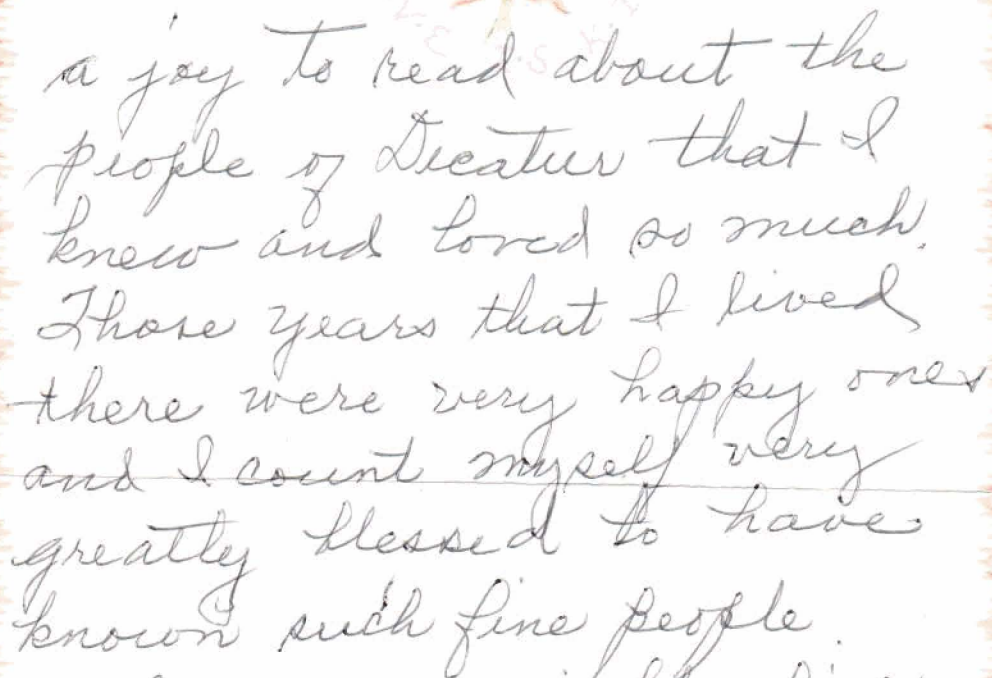 a joy to read about the
people of Decatur that I
knew and loved so much.
Those years that I lived
there were very happy ones
and I count myself very
greatly blessed to have
known such fine people.